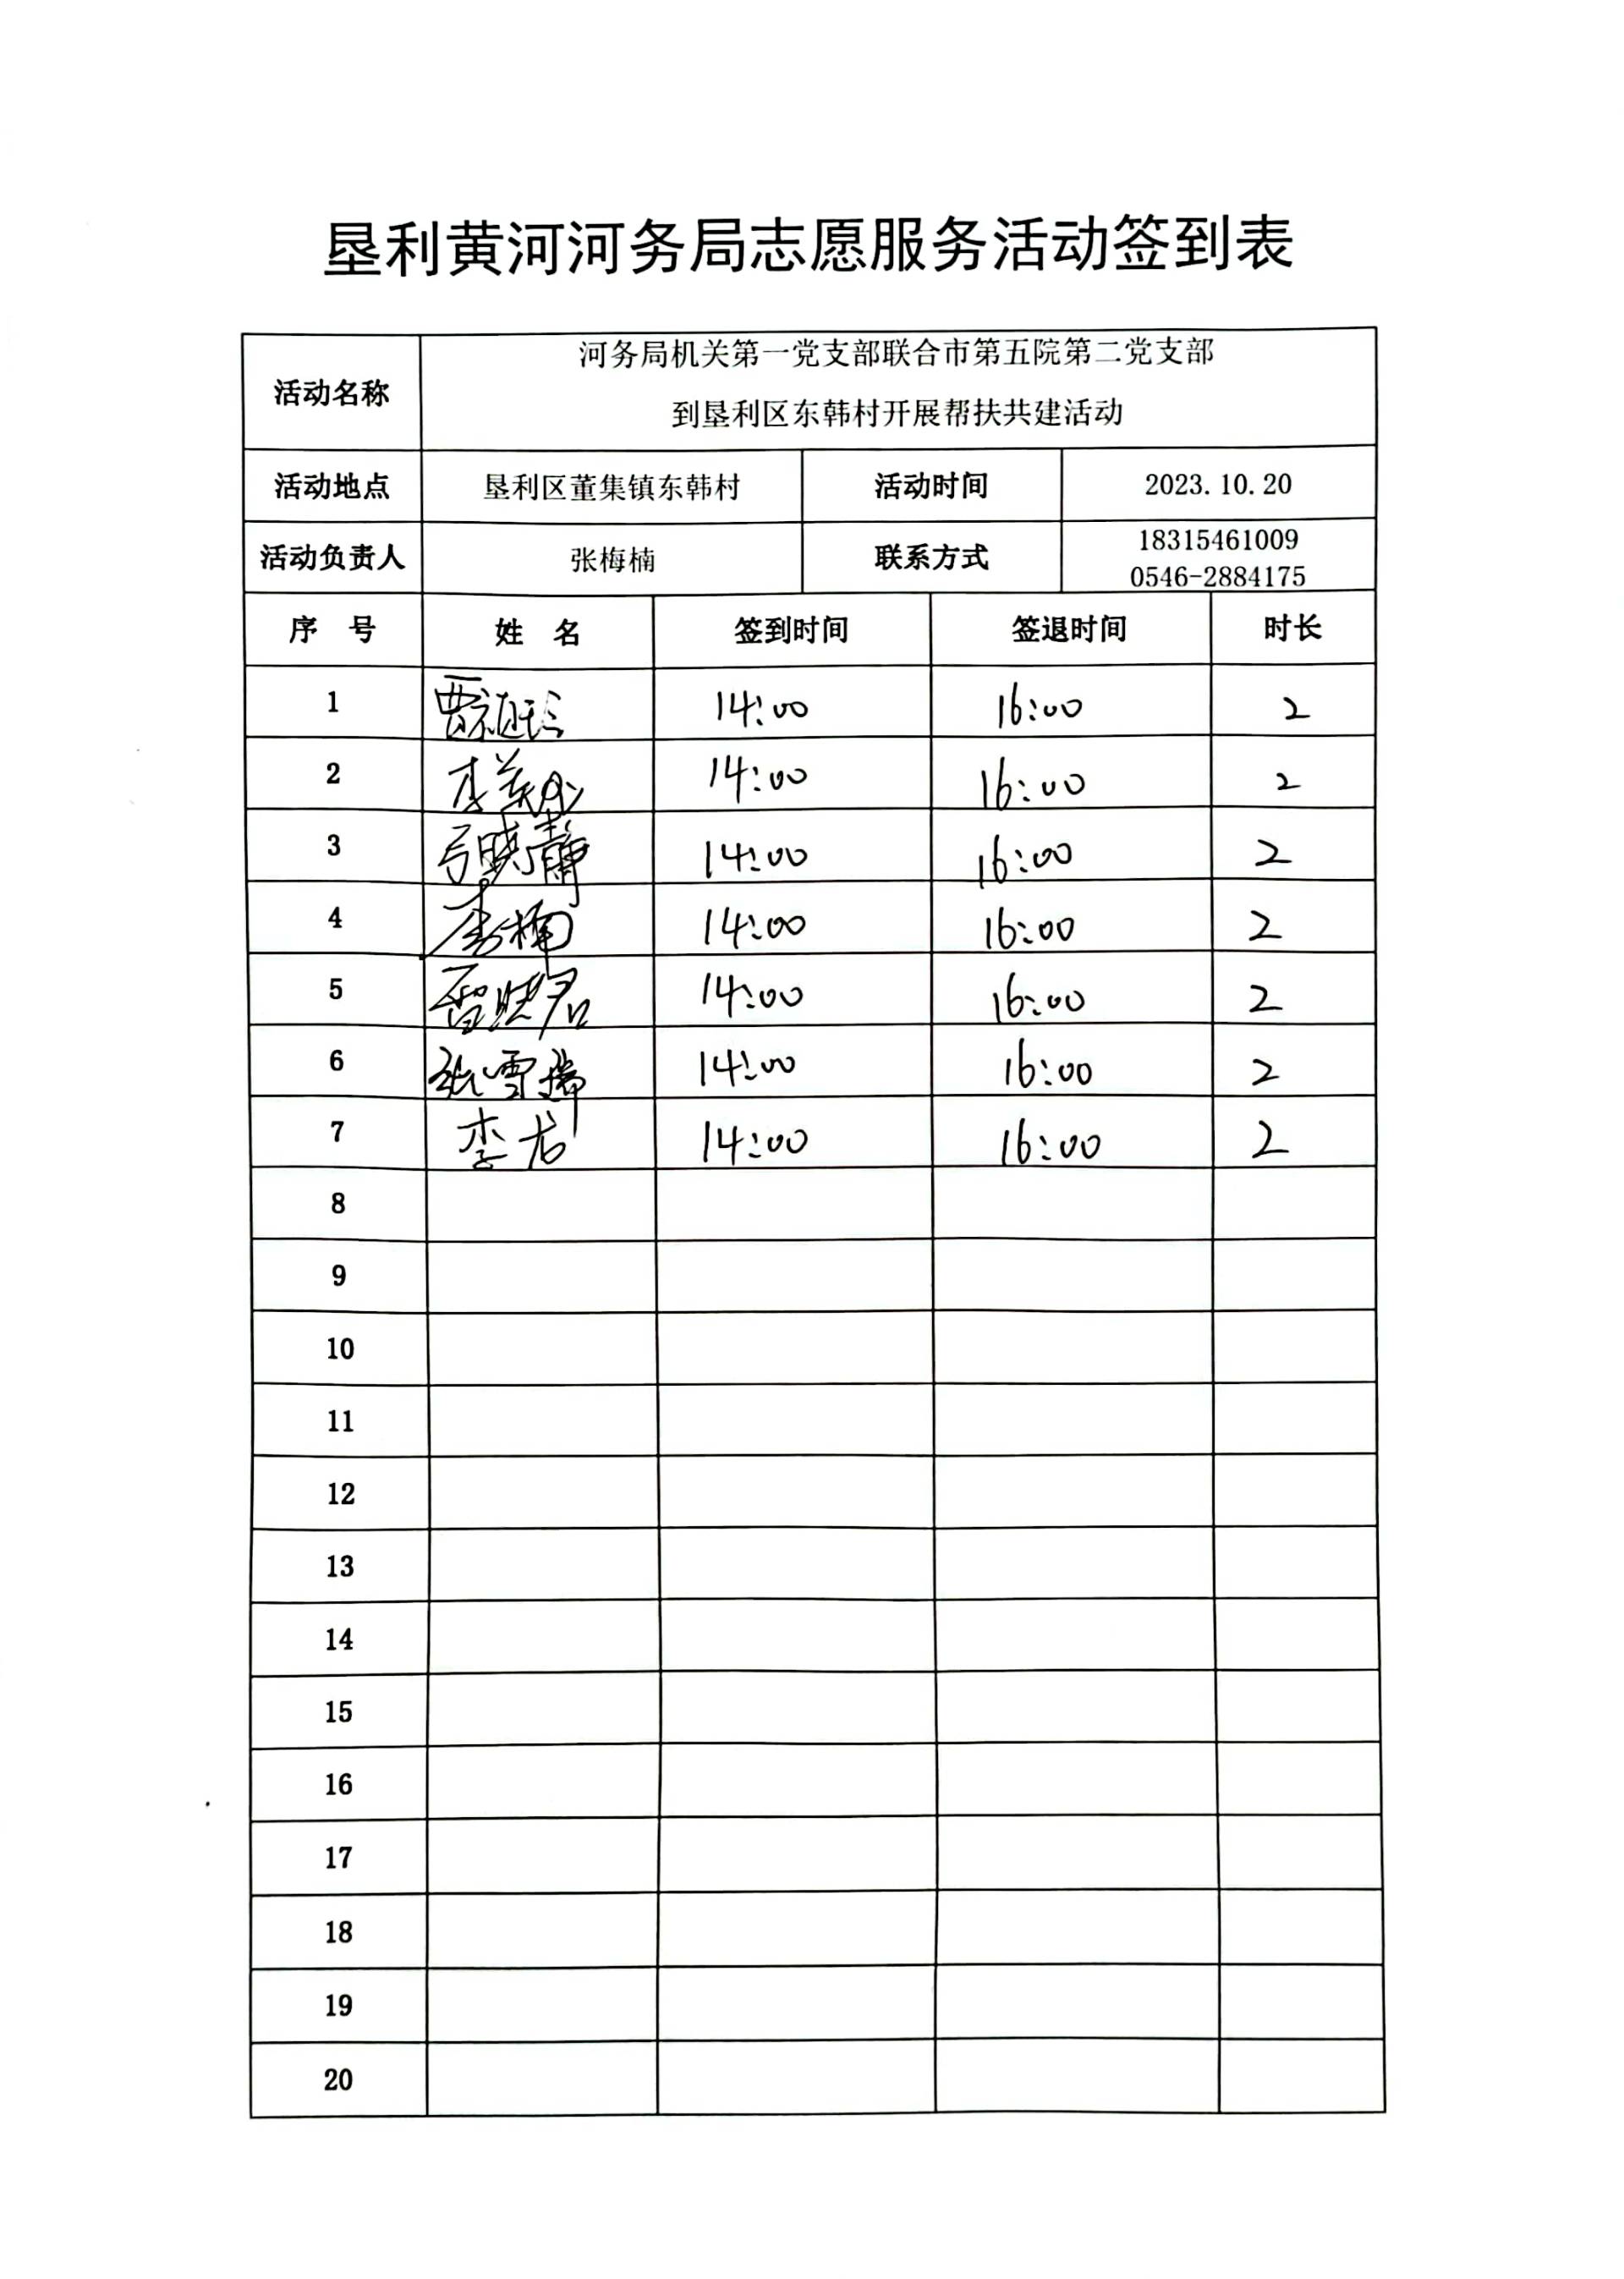 垦利黄河河务局志愿服务活动签到表
活动名称 河务局机关第一党支部联合市第五院第二党支部
到垦利区东韩村开展帮扶共建活动
活动地点 垦利区董集镇东韩村 活动时间 2023.10.20
活动负责人 张梅楠 联系方式 18315461009
0546-2884175
序 号 姓 名 签到时间 签退时间 时长
1 14:00 16:00 2
2 14:00 16:00 2
3 14:00 16:00 2
4 李楠 14:00 16:00 2
5 14:00 16:00 2
6 张雪瑞 14:00 16:00 2
7 李龙 14:00 16:00 2
8
9
10
11
12
13
14
15
16
17
18
19
20